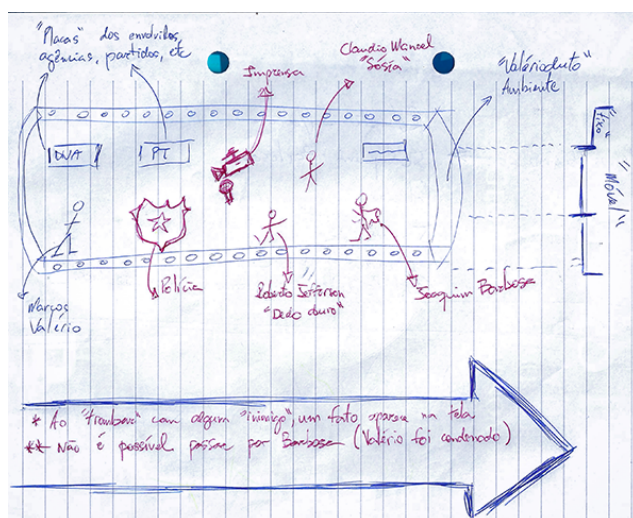 "Placas" dos envolvidos,
agências, partidos, etc
Imprensa
Claudio
"Sósia"
"Valérioduto"
Ambiente
DNA
PT
"Fixo"
"Móvel"
Marcos
Valério
Polícia
Roberto Jefferson
"Dedo duro"
Joaquim Barbosa
* Ao "trombar" com algum "inimigo", um fato aparece na tela
** Não é possível passar por Barbosa (Valério foi condenado)